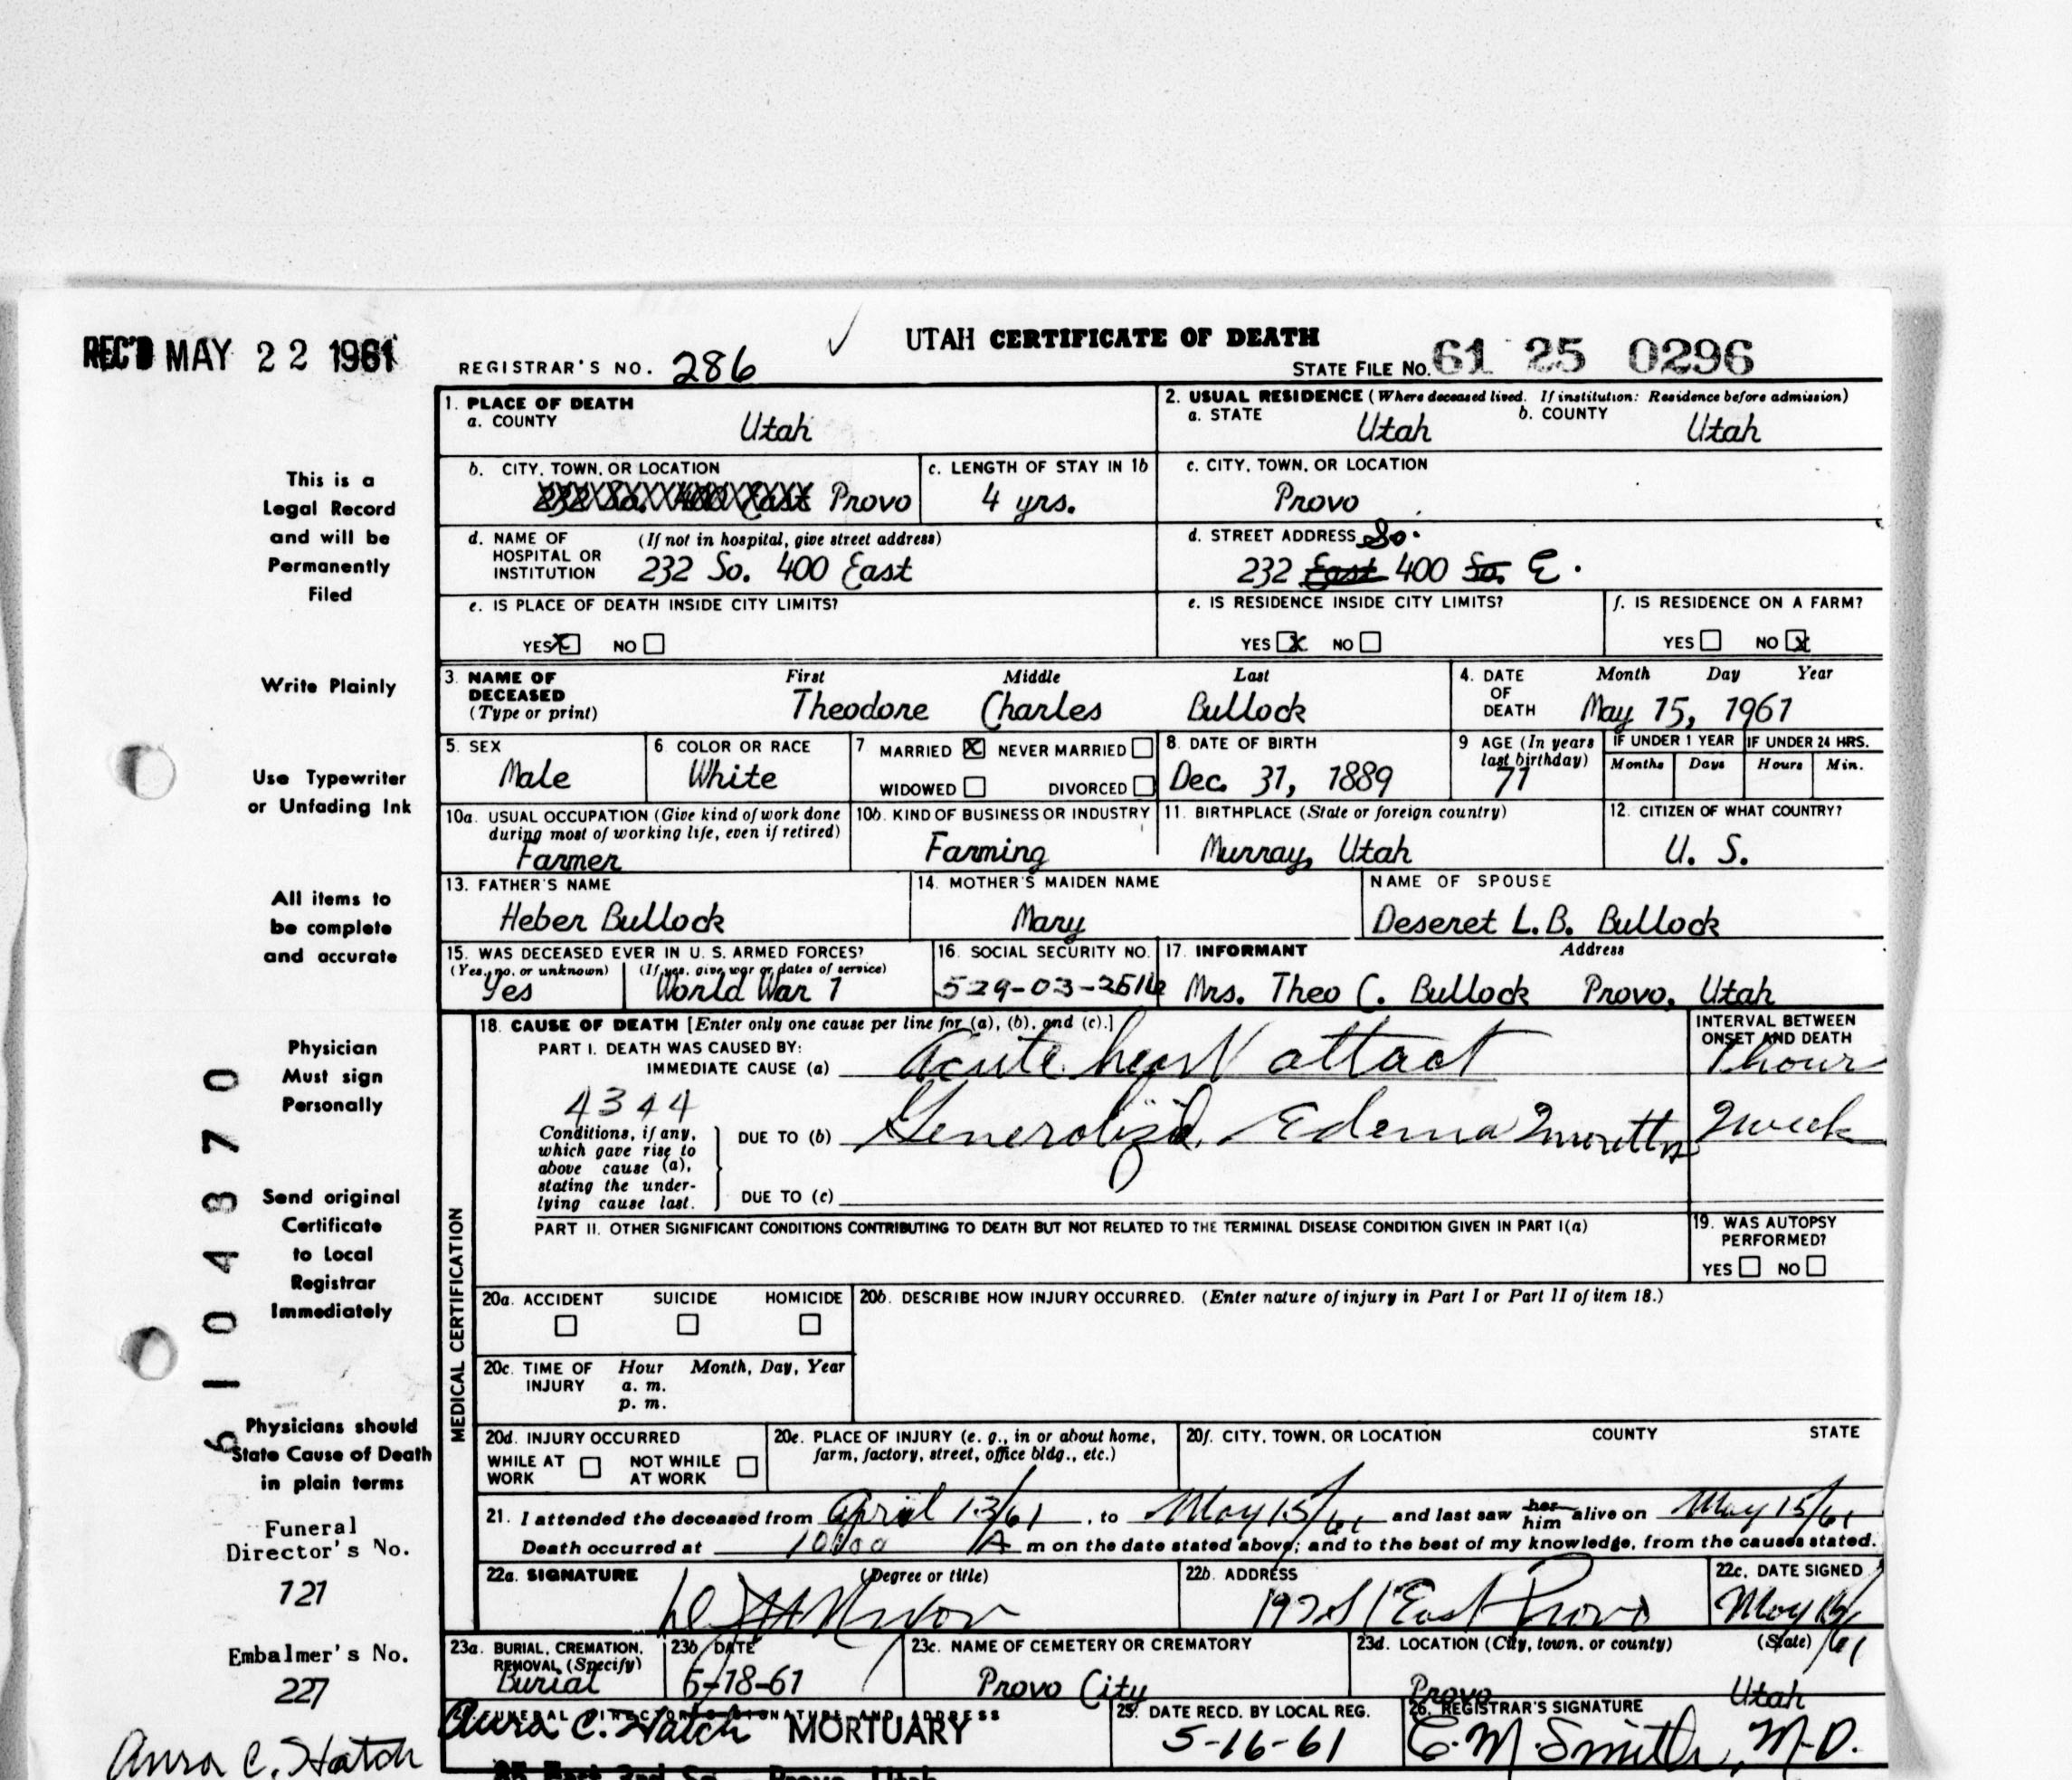 REC'D MAY 22 1961
UTAH CERTIFICATE OF DEATH
REGISTRAR'S NO. 286
STATE FILE NO. 61 25 0296
1. PLACE OF DEATH
a. COUNTY
Utah
2. USUAL RESIDENCE (Where deceased lived. If institution: Residence before admission)
a. STATE Utah b. COUNTY Utah
b. CITY, TOWN, OR LOCATION
232 So. 400 East Provo
c. LENGTH OF STAY IN 1b
4 yrs.
c. CITY, TOWN, OR LOCATION
Provo
d. NAME OF HOSPITAL OR INSTITUTION (If not in hospital, give street address)
232 So. 400 East
d. STREET ADDRESS So.
232 East 400 So. E.
e. IS PLACE OF DEATH INSIDE CITY LIMITS?
YES X NO
e. IS RESIDENCE INSIDE CITY LIMITS?
YES X NO
f. IS RESIDENCE ON A FARM?
YES NO X
3. NAME OF DECEASED (Type or print)
First Middle Last
Theodore Charles Bullock
4. DATE OF DEATH
Month Day Year
May 15, 1961
5. SEX
Male
6. COLOR OR RACE
White
7 MARRIED X NEVER MARRIED
WIDOWED DIVORCED
8. DATE OF BIRTH
Dec. 31, 1889
9 AGE (In years last birthday)
71
IF UNDER 1 YEAR
Months Days
IF UNDER 24 HRS.
Hours Min.
10a. USUAL OCCUPATION (Give kind of work done during most of working life, even if retired)
Farmer
10b. KIND OF BUSINESS OR INDUSTRY
Farming
11. BIRTHPLACE (State or foreign country)
Murray, Utah
12. CITIZEN OF WHAT COUNTRY?
U. S.
13. FATHER'S NAME
Heber Bullock
14. MOTHER'S MAIDEN NAME
Mary
NAME OF SPOUSE
Deseret L.B. Bullock
15. WAS DECEASED EVER IN U. S. ARMED FORCES?
(Yes, no, or unknown) (If yes, give war or dates of service)
Yes World War 1
16. SOCIAL SECURITY NO.
529-03-2516
17. INFORMANT Address
Mrs. Theo C. Bullock Provo, Utah
MEDICAL CERTIFICATION
18. CAUSE OF DEATH [Enter only one cause per line for (a), (b), and (c).]
PART I. DEATH WAS CAUSED BY:
IMMEDIATE CAUSE (a) Acute heart attact
INTERVAL BETWEEN ONSET AND DEATH
1 hour
4344
Conditions, if any, which gave rise to above cause (a), stating the underlying cause last.
DUE TO (b) Generalized Edema 2 months 2 week
DUE TO (c)
PART II. OTHER SIGNIFICANT CONDITIONS CONTRIBUTING TO DEATH BUT NOT RELATED TO THE TERMINAL DISEASE CONDITION GIVEN IN PART I(a)
19. WAS AUTOPSY PERFORMED?
YES NO
20a. ACCIDENT SUICIDE HOMICIDE
20b. DESCRIBE HOW INJURY OCCURRED. (Enter nature of injury in Part I or Part II of item 18.)
20c. TIME OF INJURY Hour Month, Day, Year
a. m.
p. m.
20d. INJURY OCCURRED
WHILE AT WORK NOT WHILE AT WORK
20e. PLACE OF INJURY (e. g., in or about home, farm, factory, street, office bldg., etc.)
20f. CITY, TOWN, OR LOCATION COUNTY STATE
21. I attended the deceased from April 13/61, to May 15/61 and last saw her him alive on May 15/61
Death occurred at 10:00 A m on the date stated above; and to the best of my knowledge, from the causes stated.
22a. SIGNATURE (Degree or title)
22b. ADDRESS
East Provo
22c. DATE SIGNED
May /61
23a. BURIAL, CREMATION, REMOVAL (Specify)
Burial
23b DATE
5-18-61
23c. NAME OF CEMETERY OR CREMATORY
Provo City
23d. LOCATION (City, town, or county) (State)
Provo Utah
FUNERAL DIRECTOR'S SIGNATURE AND ADDRESS
Aura C. Hatch MORTUARY
85 East 3rd So. - Provo, Utah
25. DATE RECD. BY LOCAL REG.
5-16-61
26. REGISTRAR'S SIGNATURE
C. M. Smith, M.D.
This is a
Legal Record
and will be
Permanently
Filed
Write Plainly
Use Typewriter
or Unfading Ink
All items to
be complete
and accurate
Physician
Must sign
Personally
Send original
Certificate
to Local
Registrar
Immediately
Physicians should
State Cause of Death
in plain terms
Funeral
Director's No.
121
Embalmer's No.
227
Aura C. Hatch
6104870